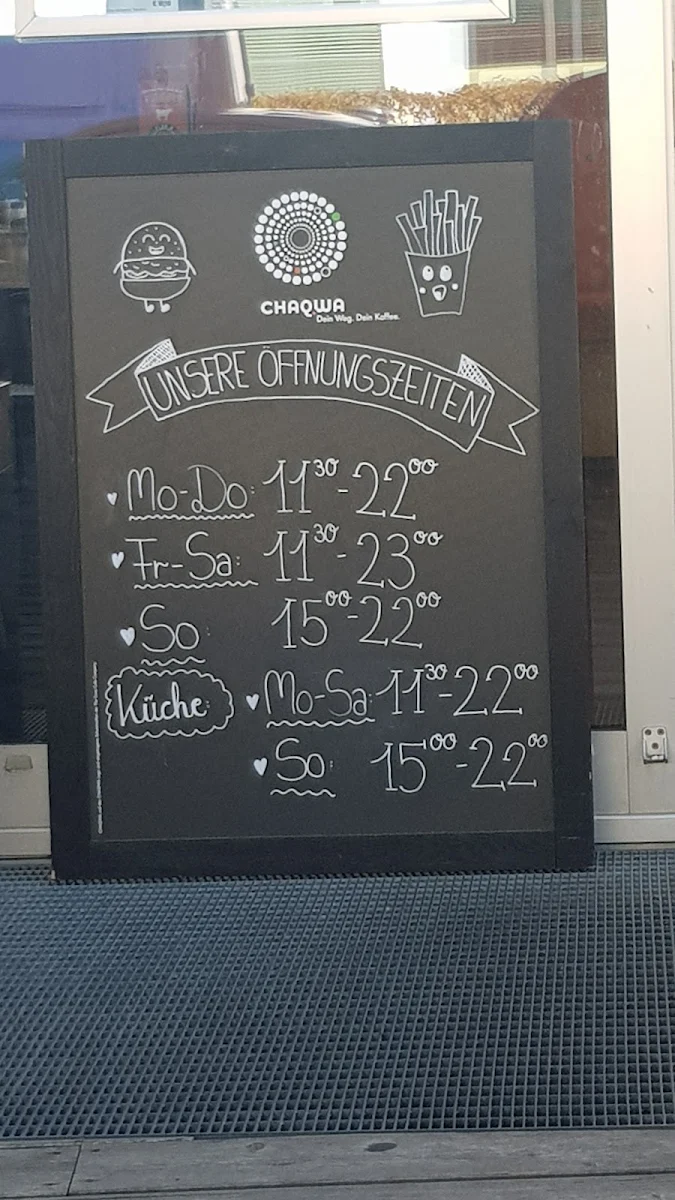 CHAQWA
Dein Weg. Dein Kaffee.
UNSERE ÖFFNUNGSZEITEN
Mo-Do: 11³⁰-22⁰⁰
Fr-Sa: 11³⁰-23⁰⁰
So: 15⁰⁰-22⁰⁰
Küche: Mo-Sa: 11³⁰-22⁰⁰
So: 15⁰⁰-22⁰⁰